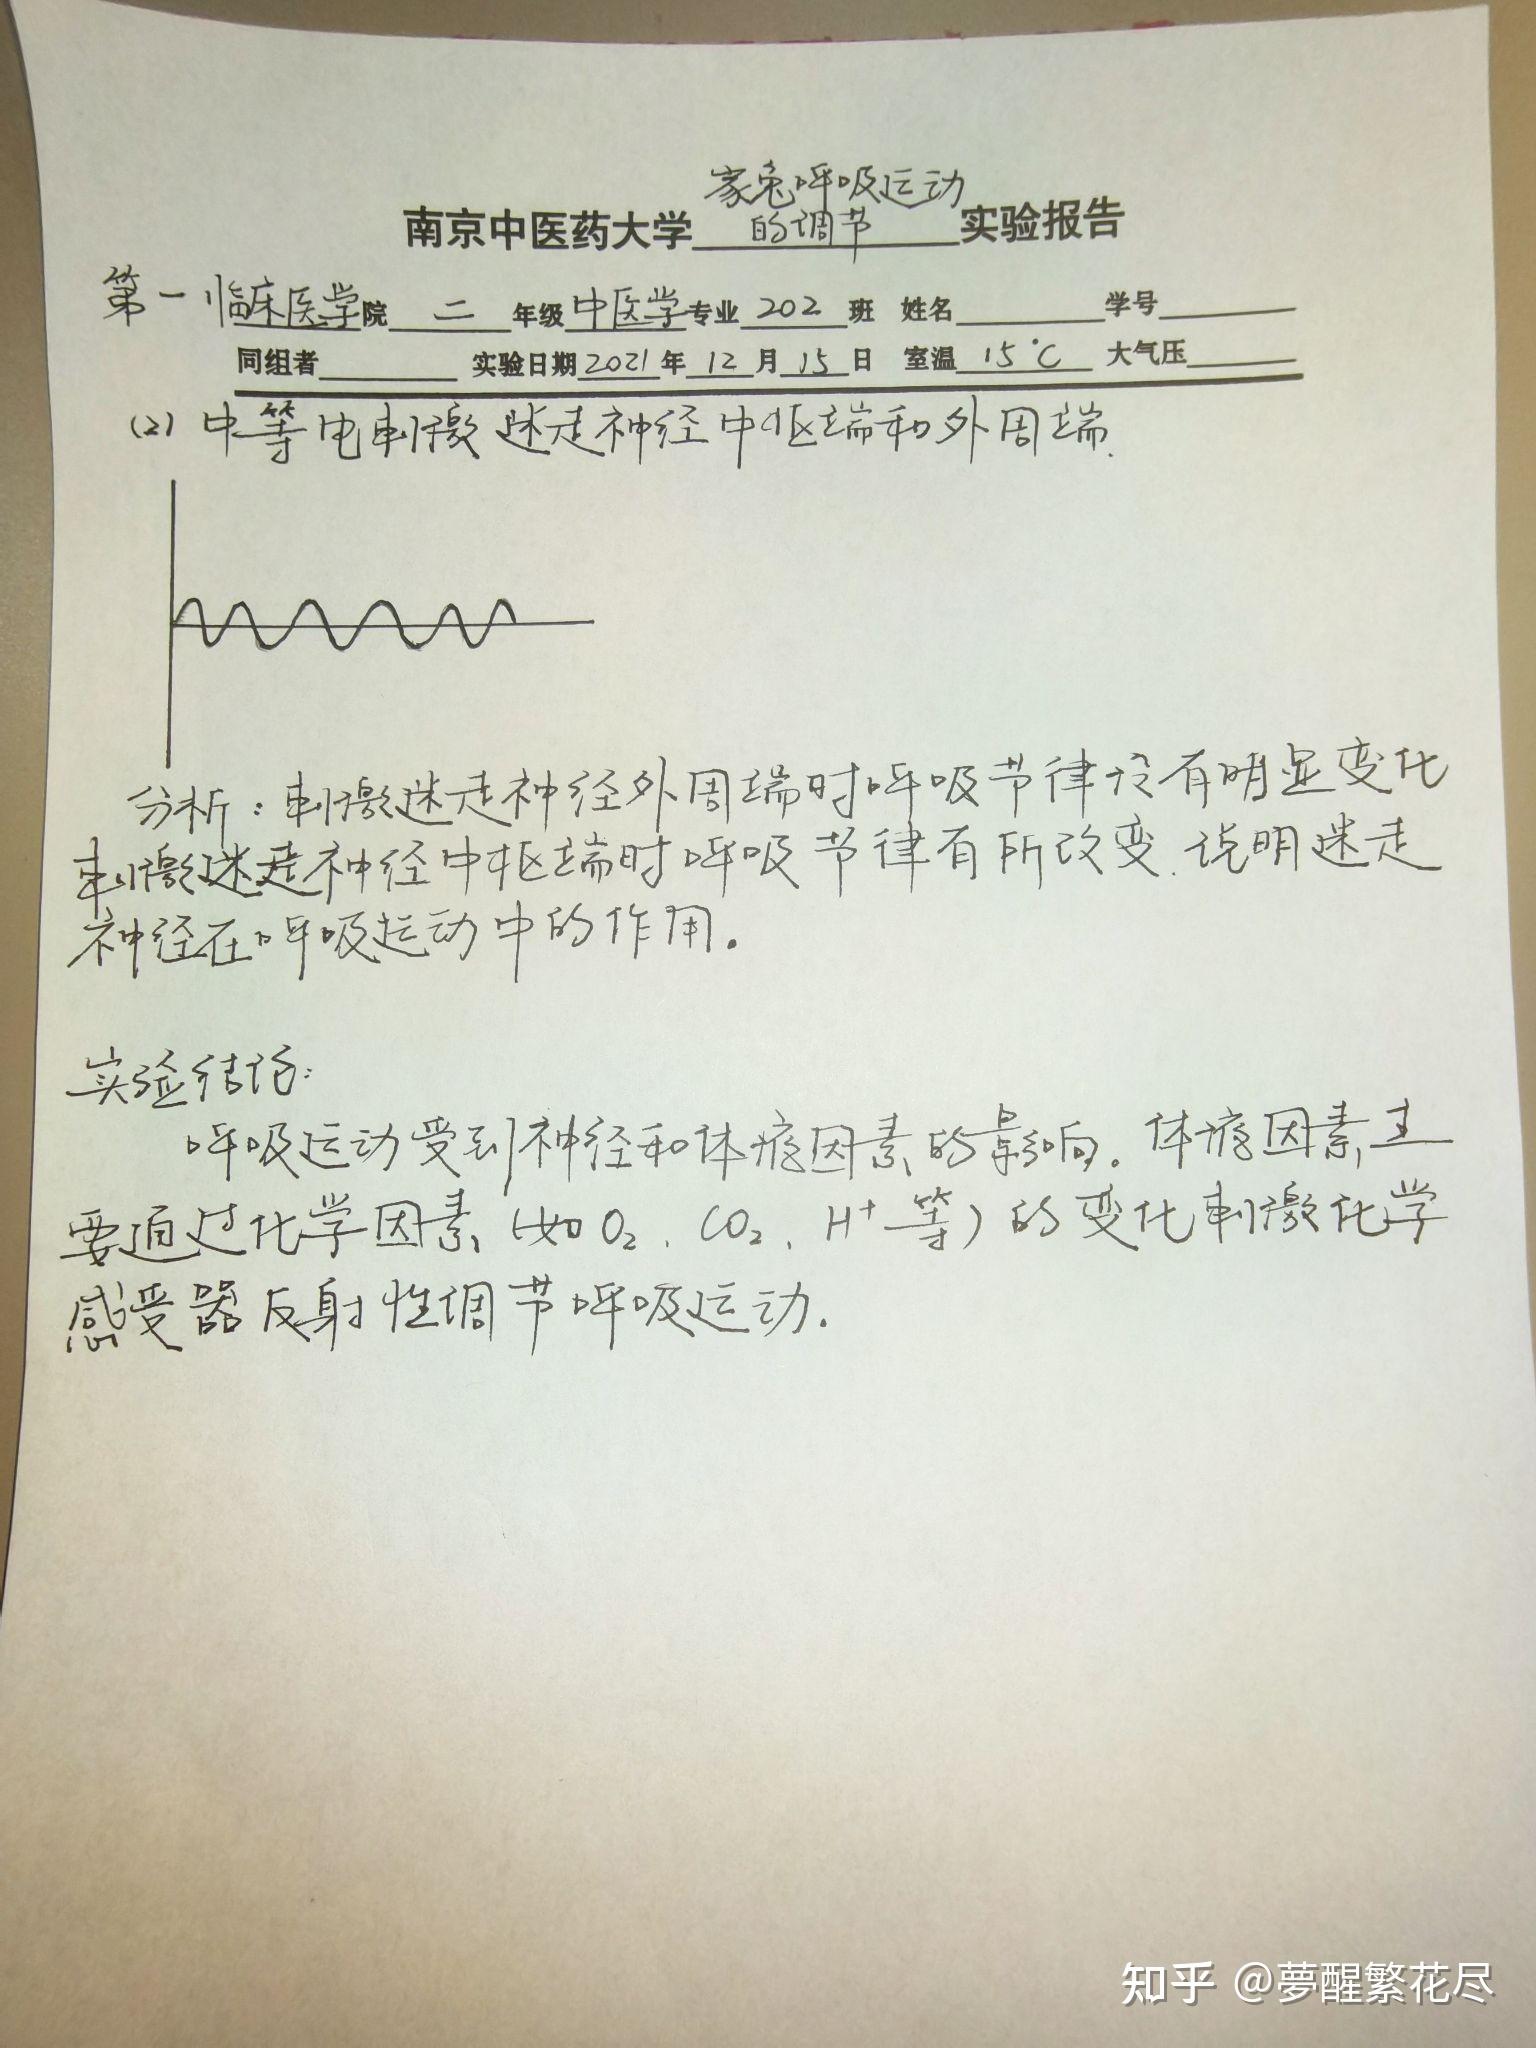 家兔呼吸运动
南京中医药大学 的调节 实验报告
第一临床医学院 二 年级 中医学 专业 202 班 姓名 学号
同组者 实验日期 2021 年 12 月 15 日 室温 15℃ 大气压
(2) 中等电刺激迷走神经中枢端和外周端.
分析:刺激迷走神经外周端时呼吸节律没有明显变化
刺激迷走神经中枢端时呼吸节律有所改变.说明迷走
神经在呼吸运动中的作用。
实验结论:
呼吸运动受到神经和体液因素的影响。体液因素主
要通过化学因素(如O₂、CO₂、H⁺等)的变化刺激化学
感受器反射性调节呼吸运动.
知乎 @夢醒繁花尽